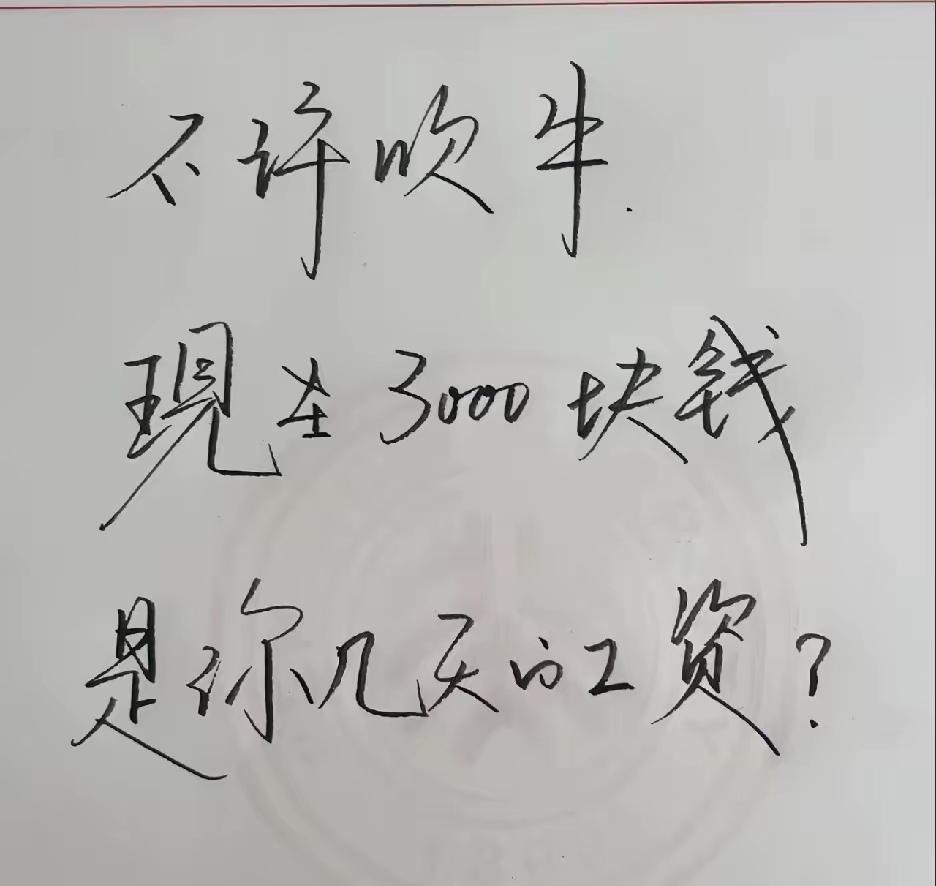 不许吹牛.
現在3000块钱
是你几天的工资?